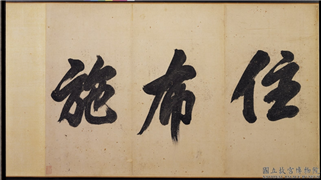 住布施
國立故宮博物院